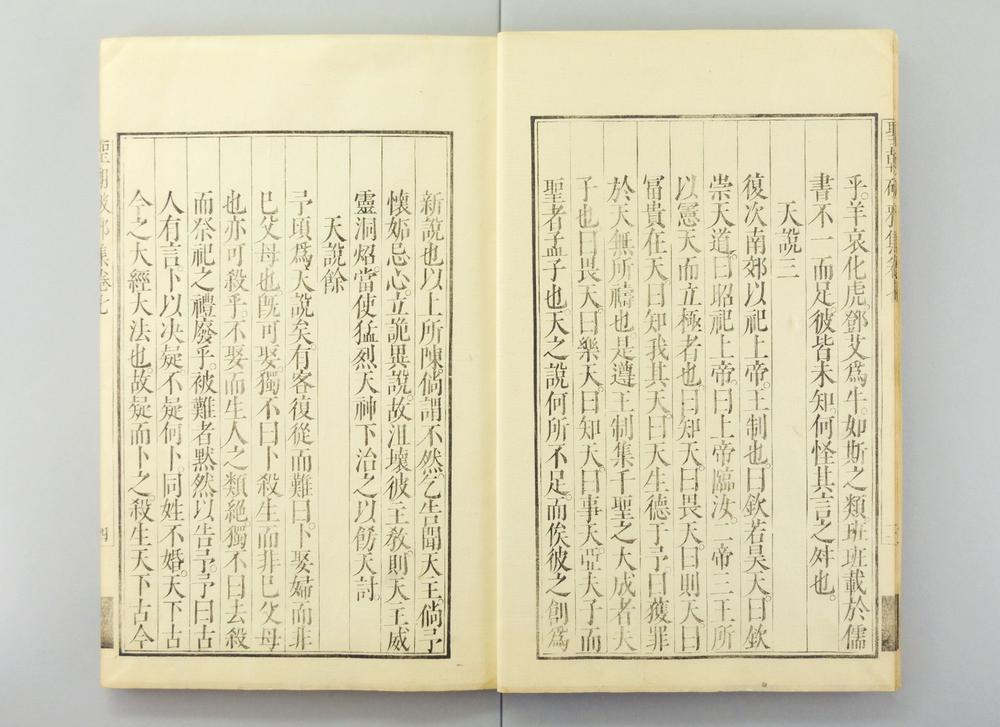 乎。羊哀化虎。鄧艾爲牛。如斯之類班班載於儒
書不一而足彼皆未知。何怪其言之舛也。
天說三
復次南郊以祀上帝。王制也。曰欽若昊天。曰欽
崇天道。曰昭祀上帝。曰上帝臨汝。二帝三王所
以憲天而立極者也。曰知天。曰畏天。曰則天。曰
富貴在天。曰知我其天。曰天生德于予。曰獲罪
於天無所禱也。是遵王制集千聖之大成者夫
子也。曰畏天。曰樂天。曰知天。曰事天。亞夫子而
聖者孟子也。天之說何所不足。而俟彼之創爲
新說也。以上所陳。倘謂不然。乞告聞天主。倘予
懷妬忌心。立詭異說。故沮壞彼王敎。則天主威
靈洞炤。當使猛烈天神下治之。以飭天討。
天說餘
予頃爲天說矣。有客復從而難曰。卜娶婦而非
已父母也。旣可娶。獨不曰卜殺生而非已父母
也亦可殺乎。不娶而生人之類絕。獨不曰去殺
而祭祀之禮廢乎。被難者默然以告予。予曰古
人有言卜以决疑。不疑何卜。同姓不婚。天下古
今之大經大法也。故疑而卜之。殺生天下古今
聖朝破邪集卷七
四